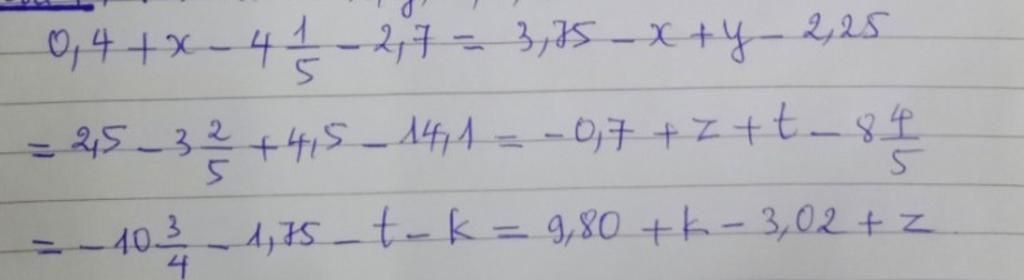 0,4 + x - 4 1/5 - 2,7 = 3,75 - x + y - 2,25
= 2,5 - 3 2/5 + 4,5 - 14,1 = -0,7 + z + t - 8 4/5
= -10 3/4 - 1,75 - t - k = 9,80 + k - 3,02 + z